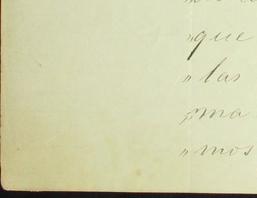 "que
"las
"ma
"mos